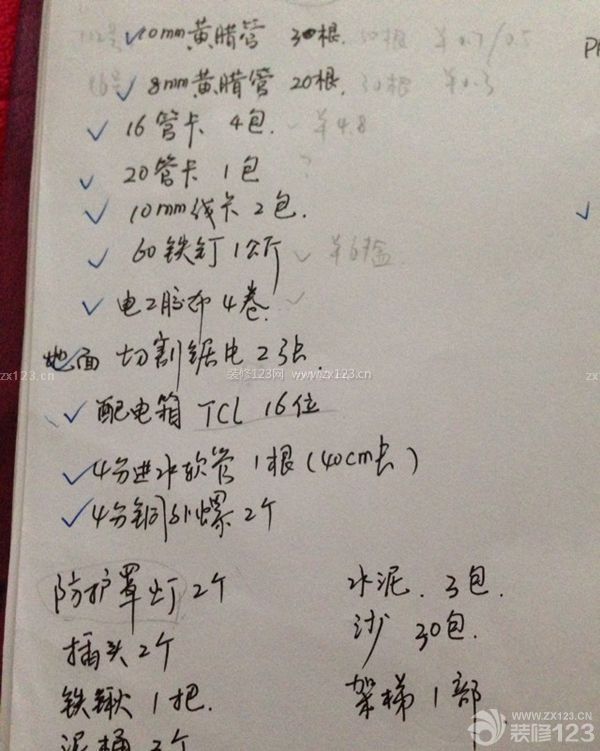 10mm黄腊管 30根. 50根 ¥0.7/0.5
8mm黄腊管 20根. 30根 ¥0.3
16管卡 4包 ¥4.8
20管卡 1包
10mm线卡 2包.
60铁钉 1公斤 ¥6盒
电工胶布 4卷.
地面 切割锯片 2张.
配电箱 TCL 16位
4分进水软管 1根(40cm长)
4分铜外螺 2个
防护罩灯 2个
插头 2个
铁锹 1把.
泥桶 2个
水泥. 3包.
沙 30包.
架梯 1部.
装修123网 www.zx123.cn
zx123.cn
WWW.ZX123.CN
装修123